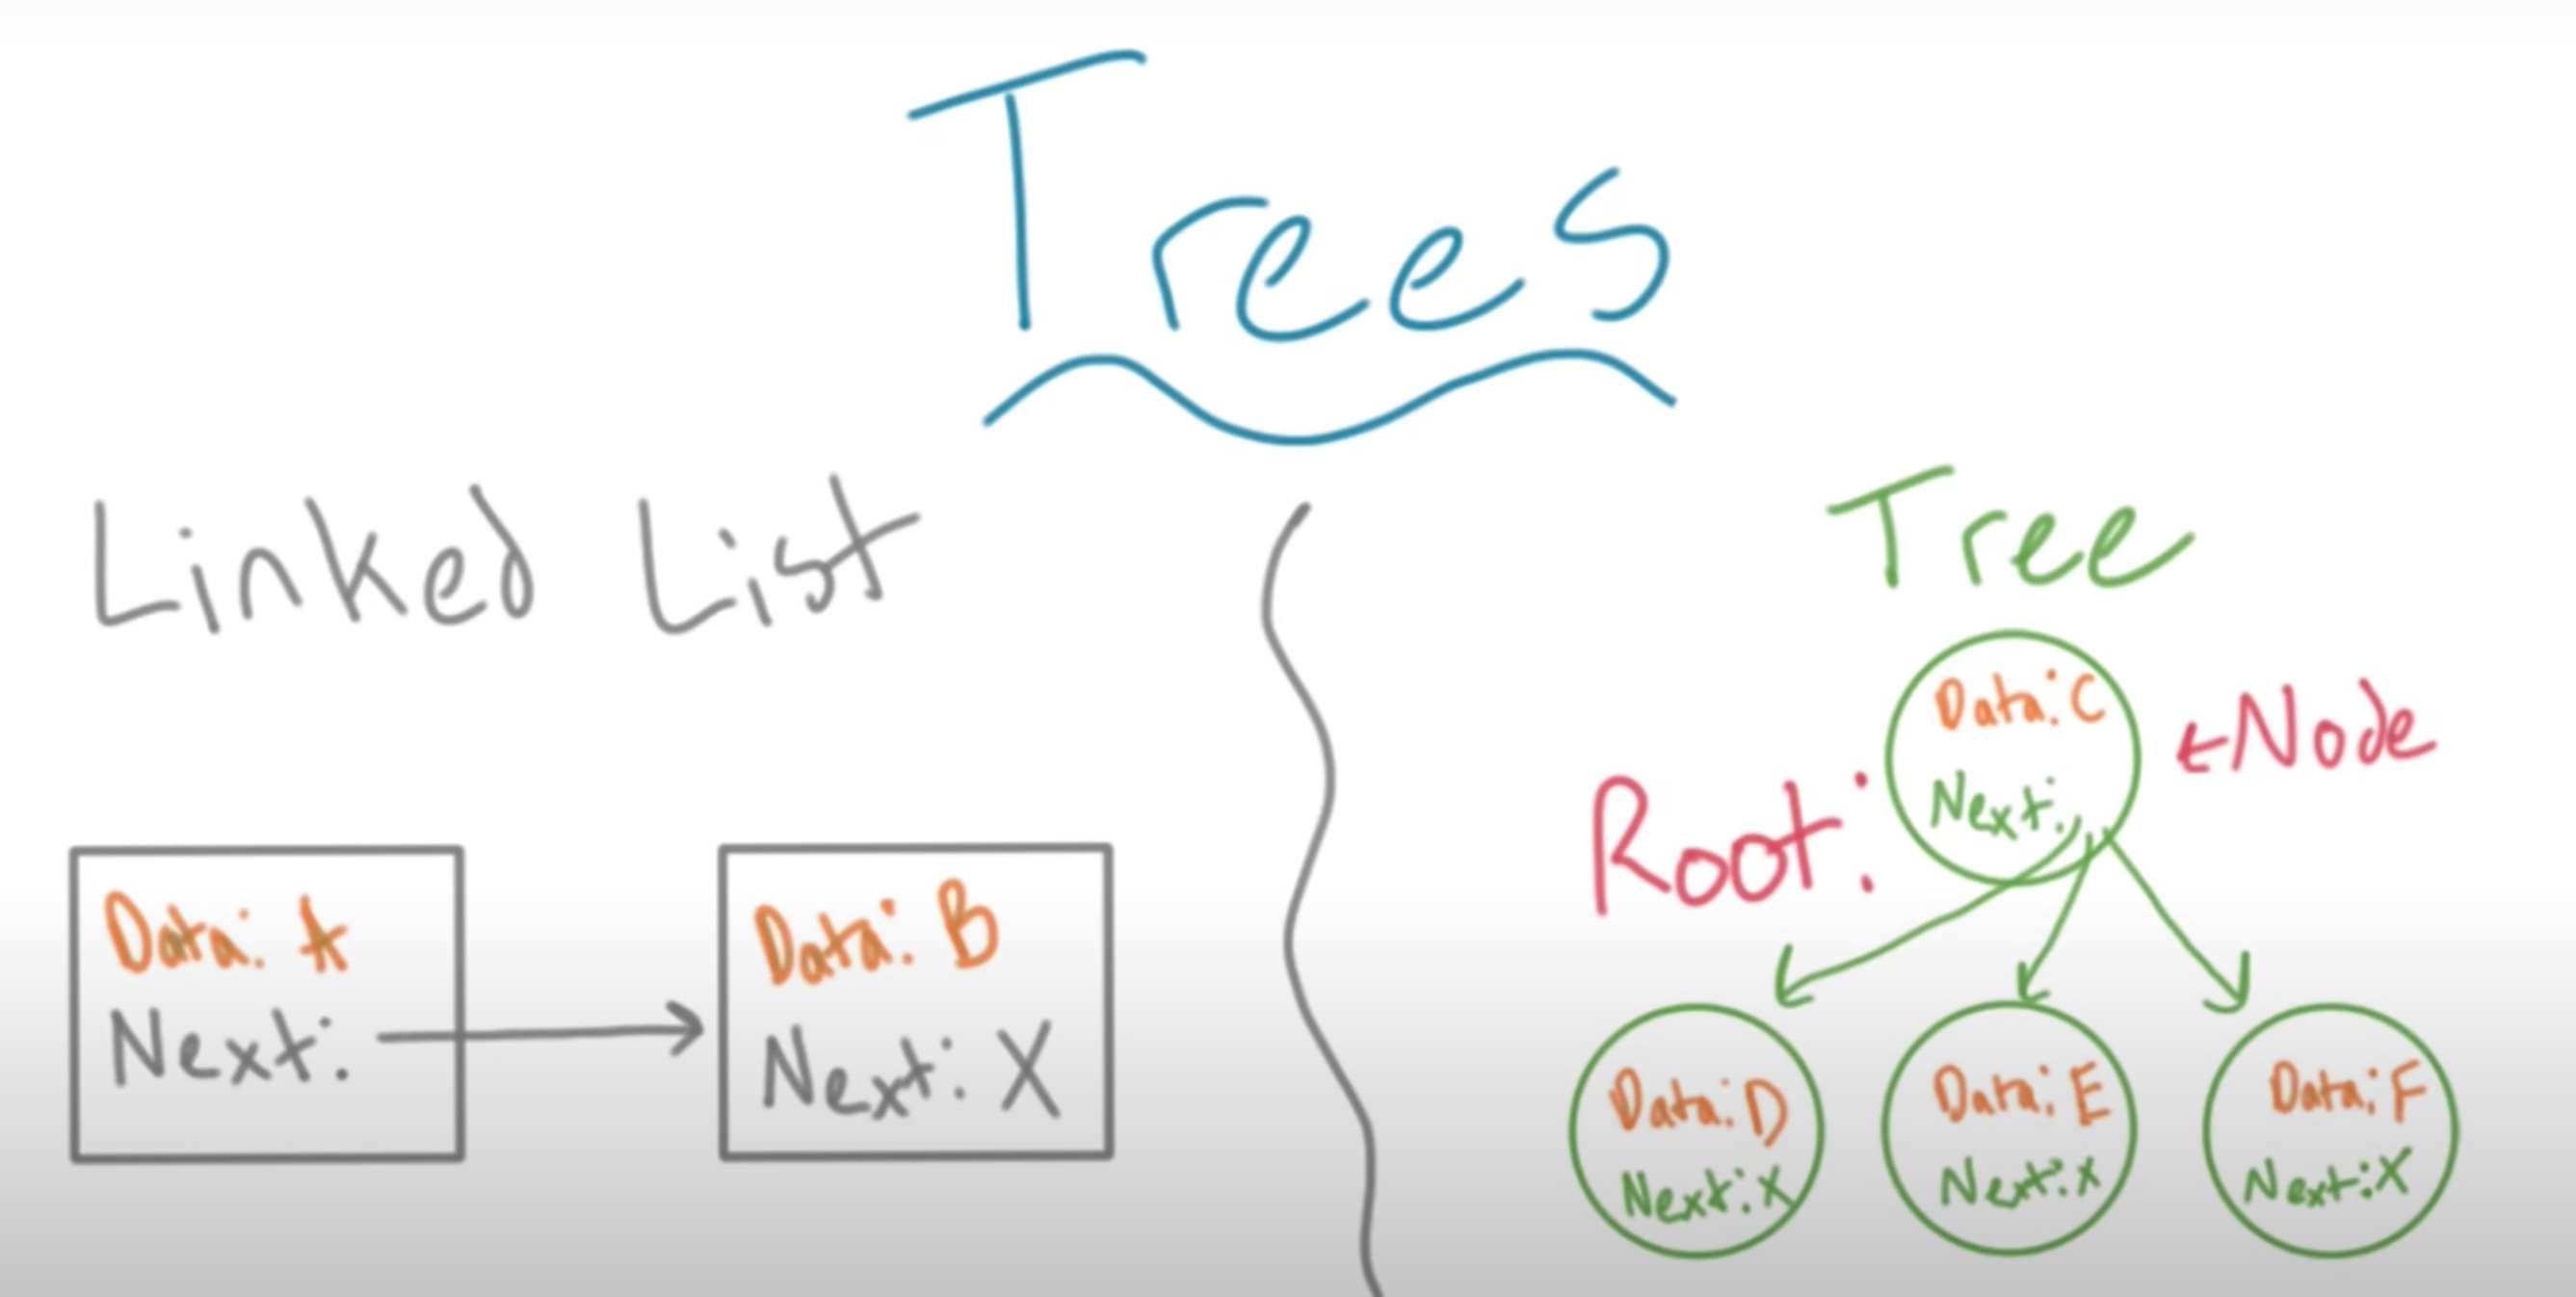 Trees
Linked List
Data: A
Next:
Data: B
Next: X
Tree
Data: C
Next:
←Node
Root:
Data: D
Next: X
Data: E
Next: X
Data: F
Next: X